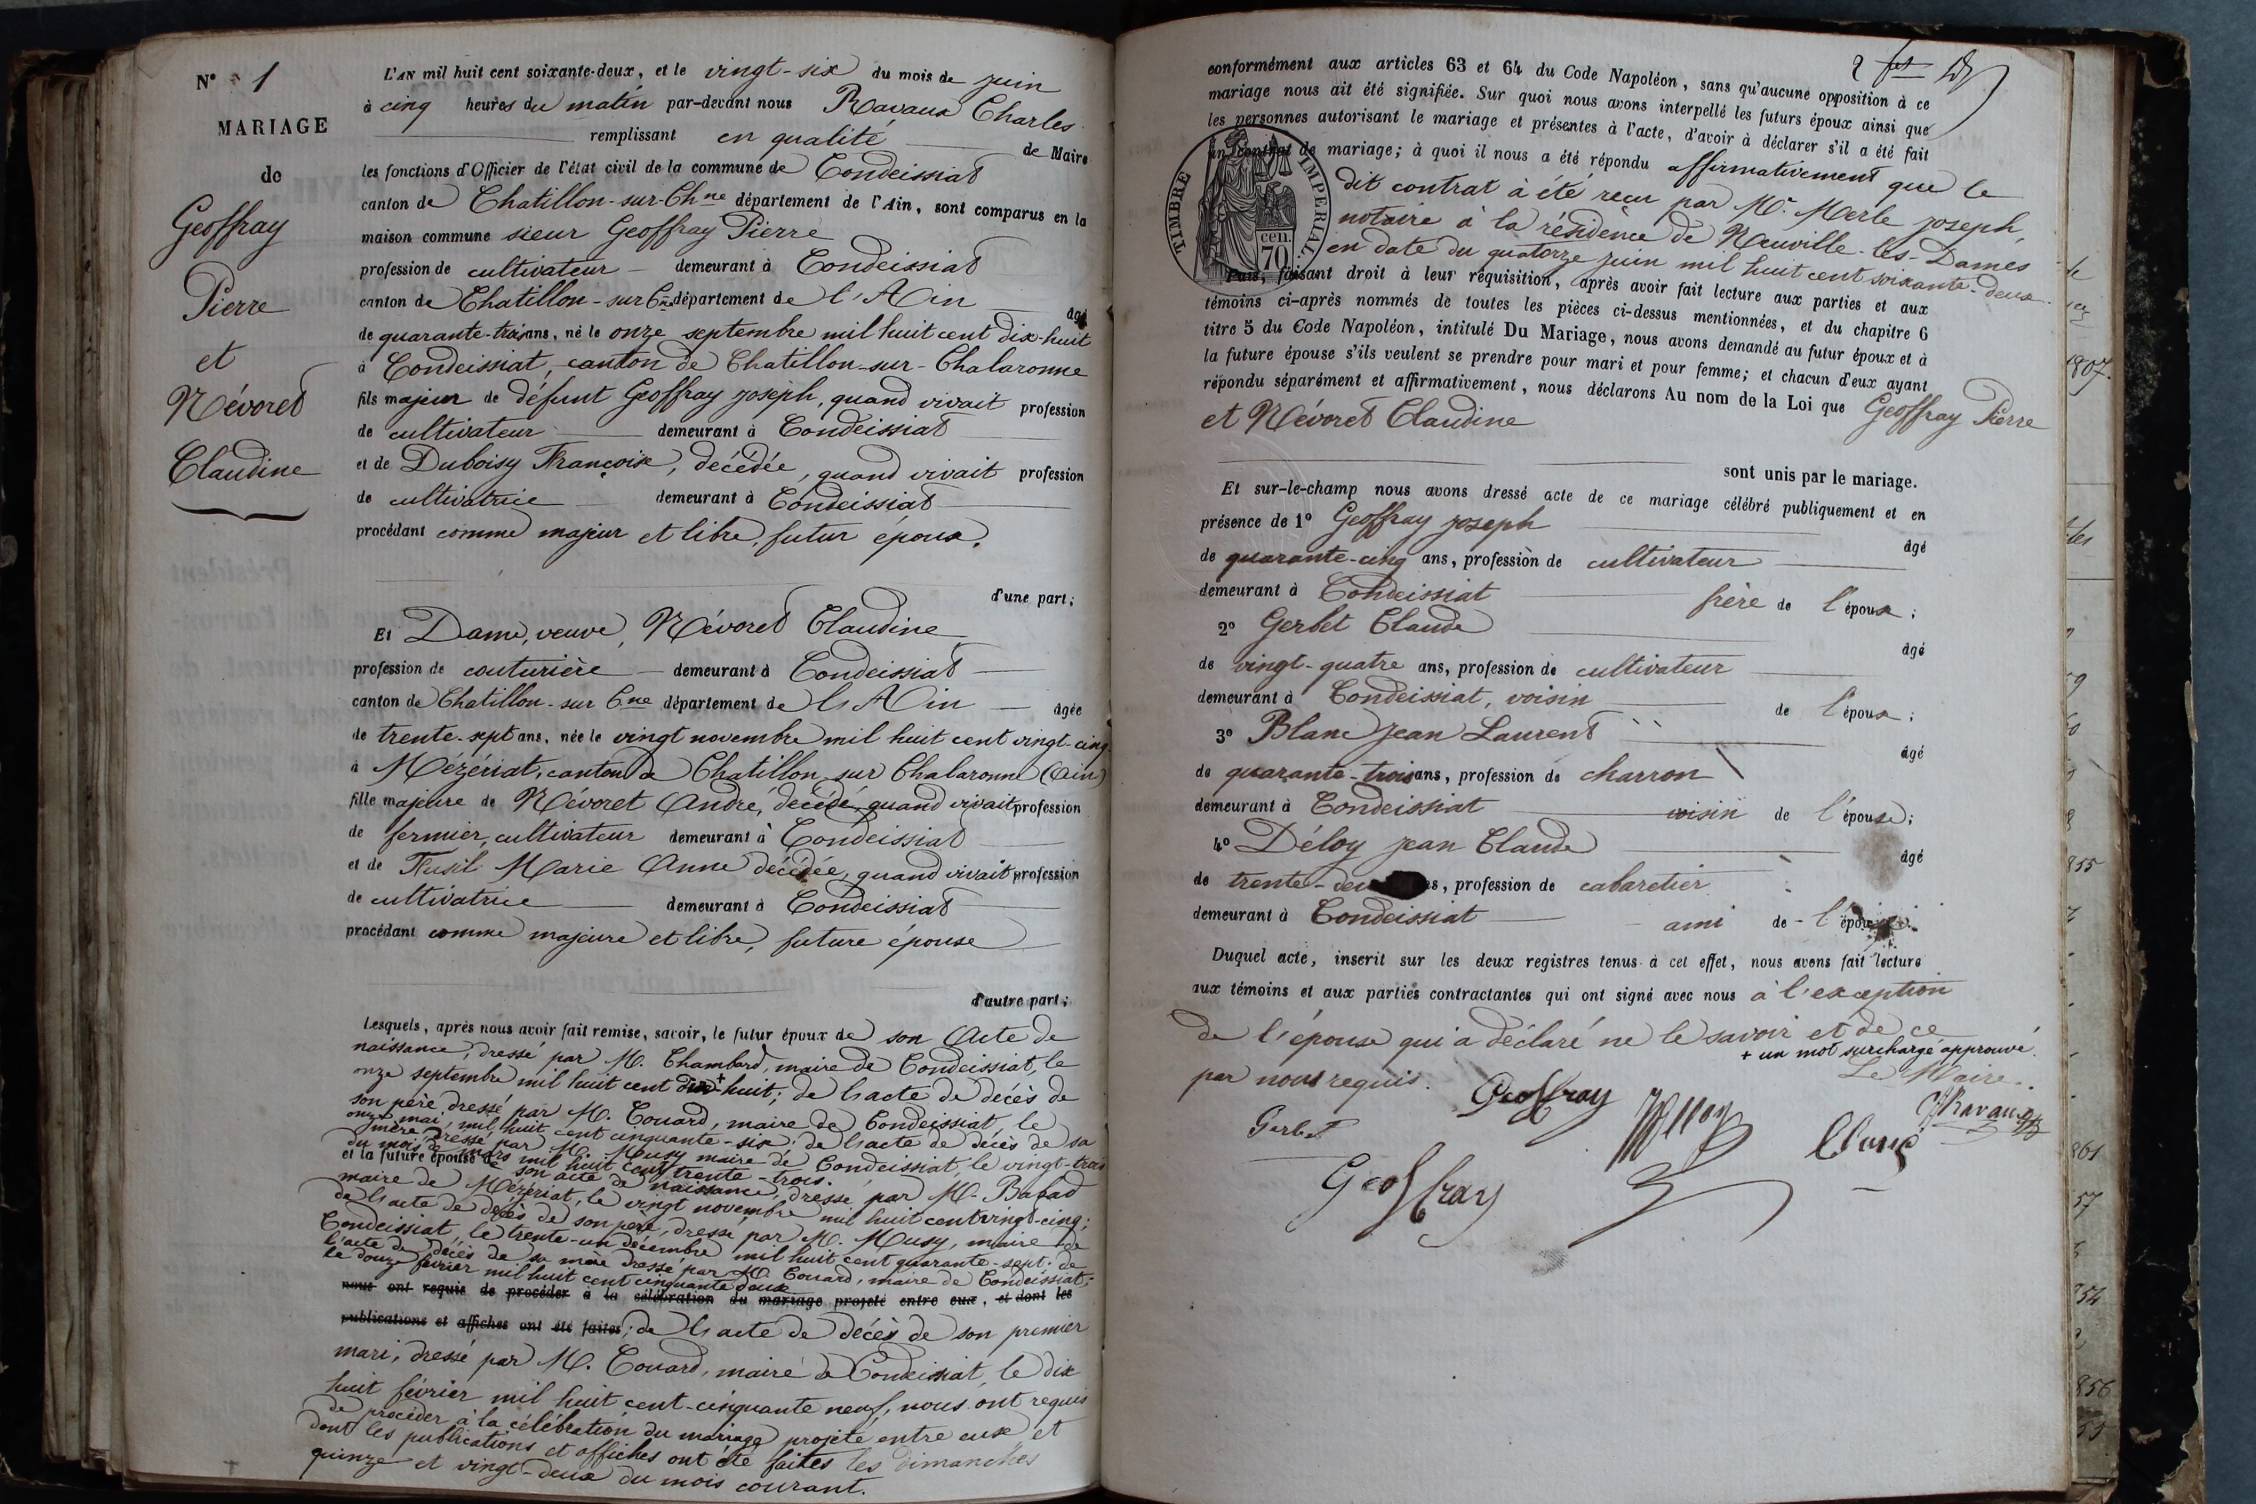 N° 1
MARIAGE
de
Geoffray
Pierre
et
Névoret
Claudine
L'AN mil huit cent soixante-deux, et le vingt-six du mois de juin
à cinq heures du matin par-devant nous Ravaux Charles
remplissant en qualité de Maire
les fonctions d'Officier de l'état civil de la commune de Condeissiat
canton de Chatillon-sur-Chne département de l'Ain, sont comparus en la
maison commune sieur Geoffray Pierre
profession de cultivateur demeurant à Condeissiat
canton de Chatillon-sur Cne département de l'Ain âgé
de quarante-trois ans, né le onze septembre mil huit cent dix-huit
à Condeissiat, canton de Chatillon-sur-Chalaronne
fils majeur de défunt Geoffray joseph, quand vivait profession
de cultivateur demeurant à Condeissiat
et de Duboisy Françoise, décédée, quand vivait profession
de cultivatrice demeurant à Condeissiat
procédant comme majeur et libre, futur époux.
d'une part;
Et Dame, veuve, Névoret Claudine
profession de couturière demeurant à Condeissiat
canton de Chatillon-sur Cne département de l'Ain âgée
de trente-sept ans, née le vingt novembre mil huit cent vingt-cinq
à Mézériat, canton de Chatillon sur Chalaronne (Ain)
fille majeure de Névoret André, décédé, quand vivait profession
de fermier, cultivateur demeurant à Condeissiat
et de Fusil Marie Anne décédée, quand vivait profession
de cultivatrice demeurant à Condeissiat
procédant comme majeure et libre, future épouse
d'autre part;
Lesquels, après nous avoir fait remise, savoir, le futur époux de son Acte de
naissance, dressé par M. Chambard, maire de Condeissiat, le
onze septembre mil huit cent dix+huit; de l'acte de décès de
son père dressé par M. Couard, maire de Condeissiat, le
onze mai, mil huit cent cinquante-six; de l'acte de décès de sa
mère, dressé par M. Musy maire de Condeissiat, le vingt-trois
du mois de mars mil huit cent trente-trois.
et la future épouse de son acte de naissance, dressé par M. Babad
maire de Mézériat, le vingt novembre mil huit cent vingt-cinq;
de l'acte de décès de son père, dressé par M. Musy, maire de
Condeissiat, le trente-un décembre mil huit cent quarante-sept; de
l'acte de décès de sa mère dressé par M. Couard, maire de Condeissiat;
le douze février mil huit cent cinquante deux
nous ont requis de procéder à la célébration du mariage projeté entre eux, et dont les
publications et affiches ont été faites; de l'acte de décès de son premier
mari, dressé par M. Couard, maire de Condeissiat, le dix
huit février mil huit cent-cinquante neuf, nous ont requis
de procéder à la célébration du mariage projeté entre eux et
dont les publications et affiches ont été faites les dimanches
quinze et vingt-deux du mois courant.
conformément aux articles 63 et 64 du Code Napoléon, sans qu'aucune opposition à ce
mariage nous ait été signifiée. Sur quoi nous avons interpellé les futurs époux ainsi que
les personnes autorisant le mariage et présentes à l'acte, d'avoir à déclarer s'il a été fait
un contrat de mariage; à quoi il nous a été répondu affirmativement que le
dit contrat à été reçu par Mr Merle joseph,
notaire à la résidence de Neuville-les-Dames
en date du quatorze juin mil huit cent soixante-deux.
TIMBRE IMPERIAL
70 cen.
Puis, faisant droit à leur réquisition, après avoir fait lecture aux parties et aux
témoins ci-après nommés de toutes les pièces ci-dessus mentionnées, et du chapitre 6
titre 5 du Code Napoléon, intitulé Du Mariage, nous avons demandé au futur époux et à
la future épouse s'ils veulent se prendre pour mari et pour femme; et chacun d'eux ayant
répondu séparément et affirmativement, nous déclarons Au nom de la Loi que Geoffray Pierre
et Névoret Claudine
sont unis par le mariage.
Et sur-le-champ nous avons dressé acte de ce mariage célébré publiquement et en
présence de 1° Geoffray joseph âgé
de quarante-cinq ans, profession de cultivateur
demeurant à Condeissiat frère de l'époux;
2° Gerbet Claude âgé
de vingt-quatre ans, profession de cultivateur
demeurant à Condeissiat, voisin de l'époux;
3° Blanc Jean Laurent âgé
de quarante-trois ans, profession de charron
demeurant à Condeissiat voisin de l'épouse;
4° Déloy jean Claude âgé
de trente-deux ans, profession de cabaretier
demeurant à Condeissiat ami de l'épouse.
Duquel acte, inscrit sur les deux registres tenus à cet effet, nous avons fait lecture
aux témoins et aux parties contractantes qui ont signé avec nous à l'exception
de l'épouse qui a déclaré ne le savoir et de ce
par nous requis.
+ un mot surchargé approuvé.
Le Maire.
Geoffray
Gerbet
Geoffray
Blanc
Ch Ravaux